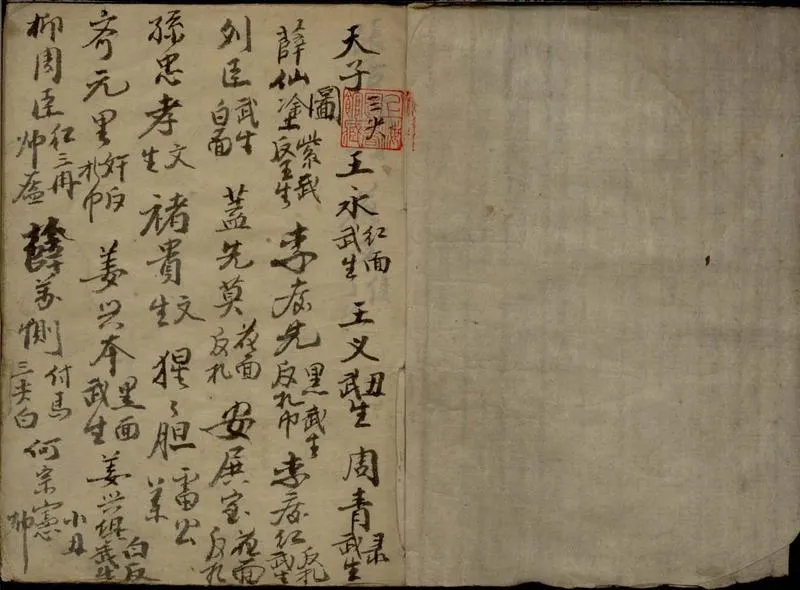 天子 三尖 王永 红面武生 王义 丑武生 周青 武生
薛仙圖 紫武 李庆先 黑武生反扎巾 李庆红 反扎武生
列臣 武生白面 蓋先莫 花面反扎 安展 花面反扎
孫忠孝 文生 褚貴 文生 猩〻胆 雷公
齐元 奸白扎巾 姜兴本 黑面武生 姜兴 白反武生
柳周臣 红三 帅盔 薛万 付马三尖白 何宗憲 小丑帅